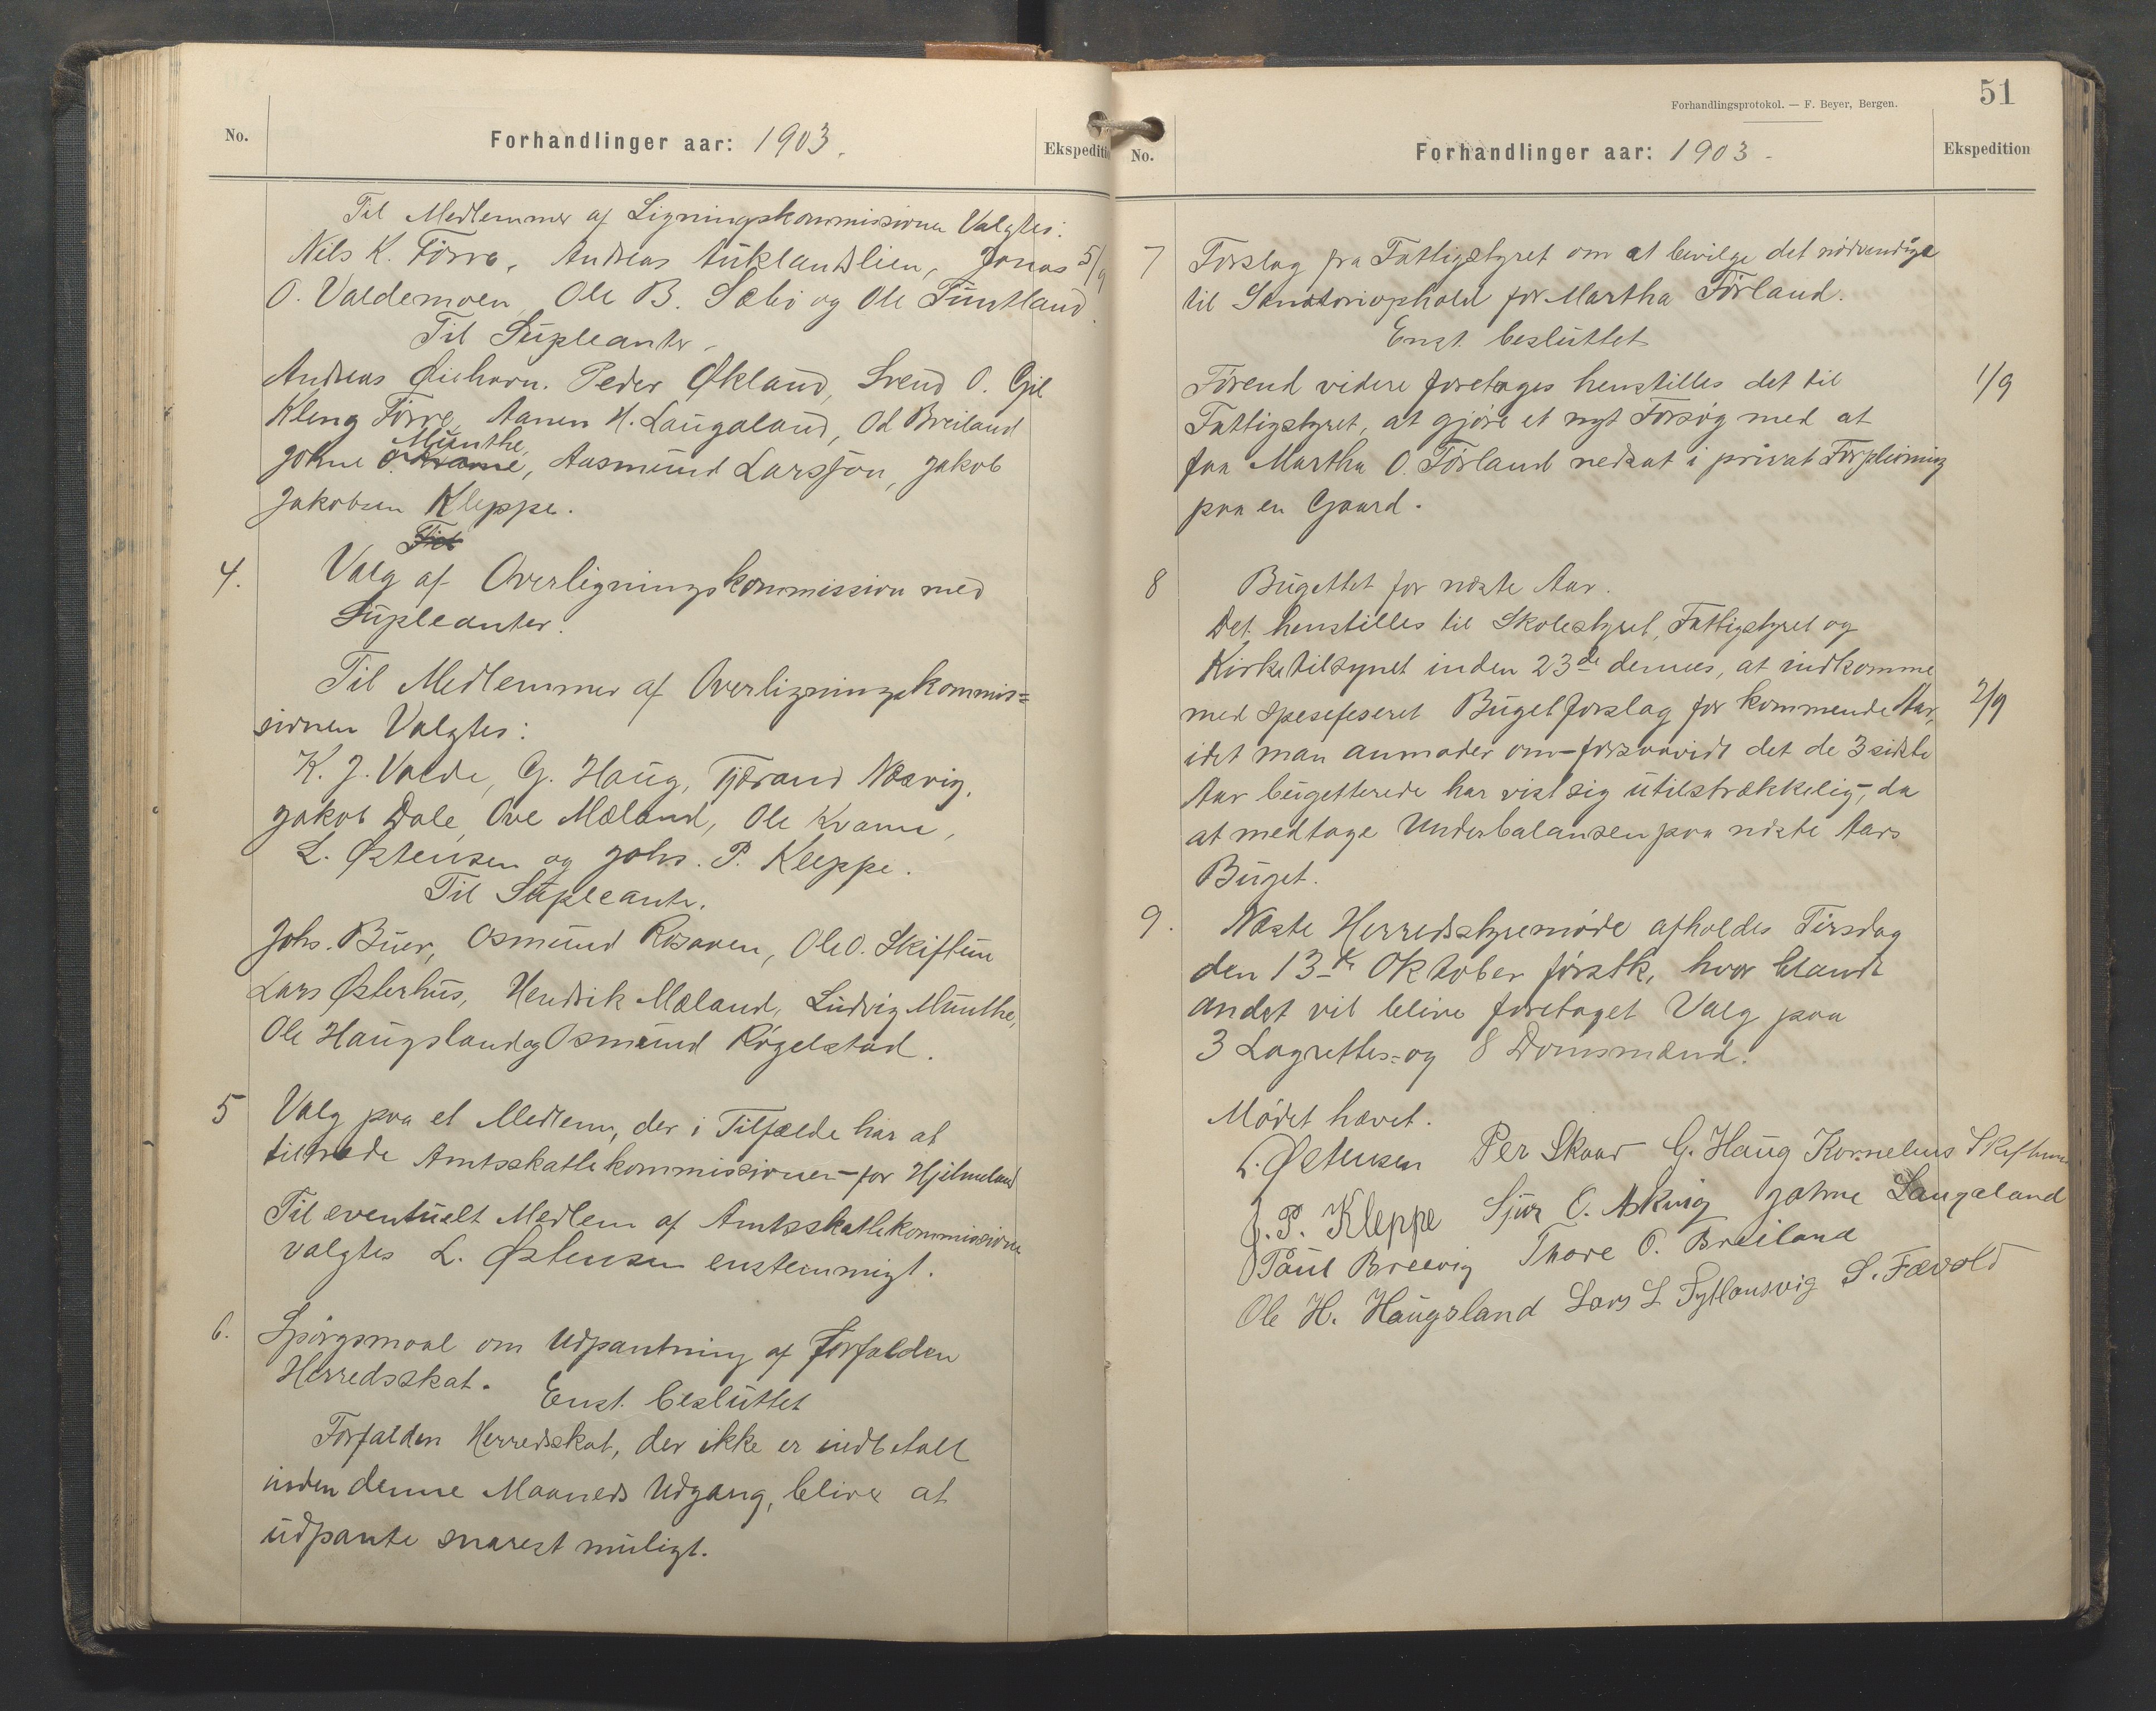 No.
Forhandlinger aar: 1903.
Ekspedition
Til Medlemmer af Ligningskommissionen Valgtes:
Nils K. Førre, Andreas Auklandslien, Jonas 5/9
O. Valdemoen, Ole B. Sæbø og Ole Tuntland.
Til Supleanter.
Andreas Øiehavn. Peder Økland, Svend O. Gil
Kleng Førre, Aanen H. Laugaland, Od Breiland
Munthe,
Johne O. Kvame, Aasmund Larsson, Jakob
Jakobsen Kleppe.
Til
4. Valg af Overligningskommission med
Supleanter.
Til Medlemmer af Overligningskommis=
sionen Valgtes:
K. J. Valde, G. Haug, Tjerand Næsvig,
Jakob Dale, Ove Mæland, Ole Kvame,
L. Østensen og Johs. P. Kleppe.
Til Supleante.
Johs. Buer, Osmund Riskaven, Ole O. Skiftun
Lars Østerhus, Hendrik Mæland, Ludvig Munthe,
Ole Haugsland og Osmund Røgelstad.
5 Valg paa et Medlem, der i Tilfælde har at
tiltræde Amtsskattekommissionen for Hjelmeland
Til eventuelt Medlem af Amtsskattekommissionen
valgtes L. Østensen enstemmigt.
6. Spørgsmaal om Udpantning af forfalden
Herredsskat.
Enst. besluttet
Forfalden Herredsskat, der ikke er indbetalt
inden denne Maaneds Udgang, bliver at
udpante snarest muligt.
51
Forhandlingsprotokol. — F. Beyer, Bergen.
No.
Forhandlinger aar: 1903.
Ekspedition
7 Forslag fra Fattigstyret om at bevilge det nødvendige
til Sanatoriophold for Martha Førland.
Enst. besluttet
Førend videre foretages henstilles det til 1/9
Fattigstyret, at gjøre et nyt Forsøg med at
faa Martha O. Førland nedsat i privat Forpleining
paa en Gaard.
8 Bugettet for næste Aar.
Det henstilles til Skolestyret, Fattigstyret og
Kirketilsynet inden 23de dennes, at indkomme
med spesefeseret Bugetforslag for kommende Aar, 2/9
idet man anmoder om – forsaavidt det de 3 sidste
Aar bugetterede har vist sig utilstrækkelig –, da
at medtage Underbalansen paa næste Aars
Buget.
9. Næste Herredsstyremøde afholdes Tirsdag
den 13de Oktober førstk, hvor blandt
andet vil blive foretaget Valg paa
3 Lagrettes= og 8 Domsmænd.
Mødet hævet.
L. Østensen Per Skaar G. Haug Kornelius Skiftun
J. P. Kleppe Sjur O. Askvig Johne Laugaland
Paul Breivig Thore O. Breiland
Ole H. Haugsland Lars L. S. Fævold